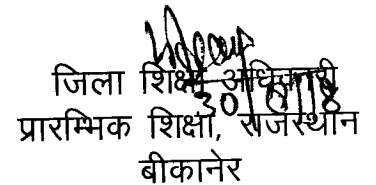 जिला शिक्षा अधिकारी
प्रारम्भिक शिक्षा, राजस्थान
बीकानेर